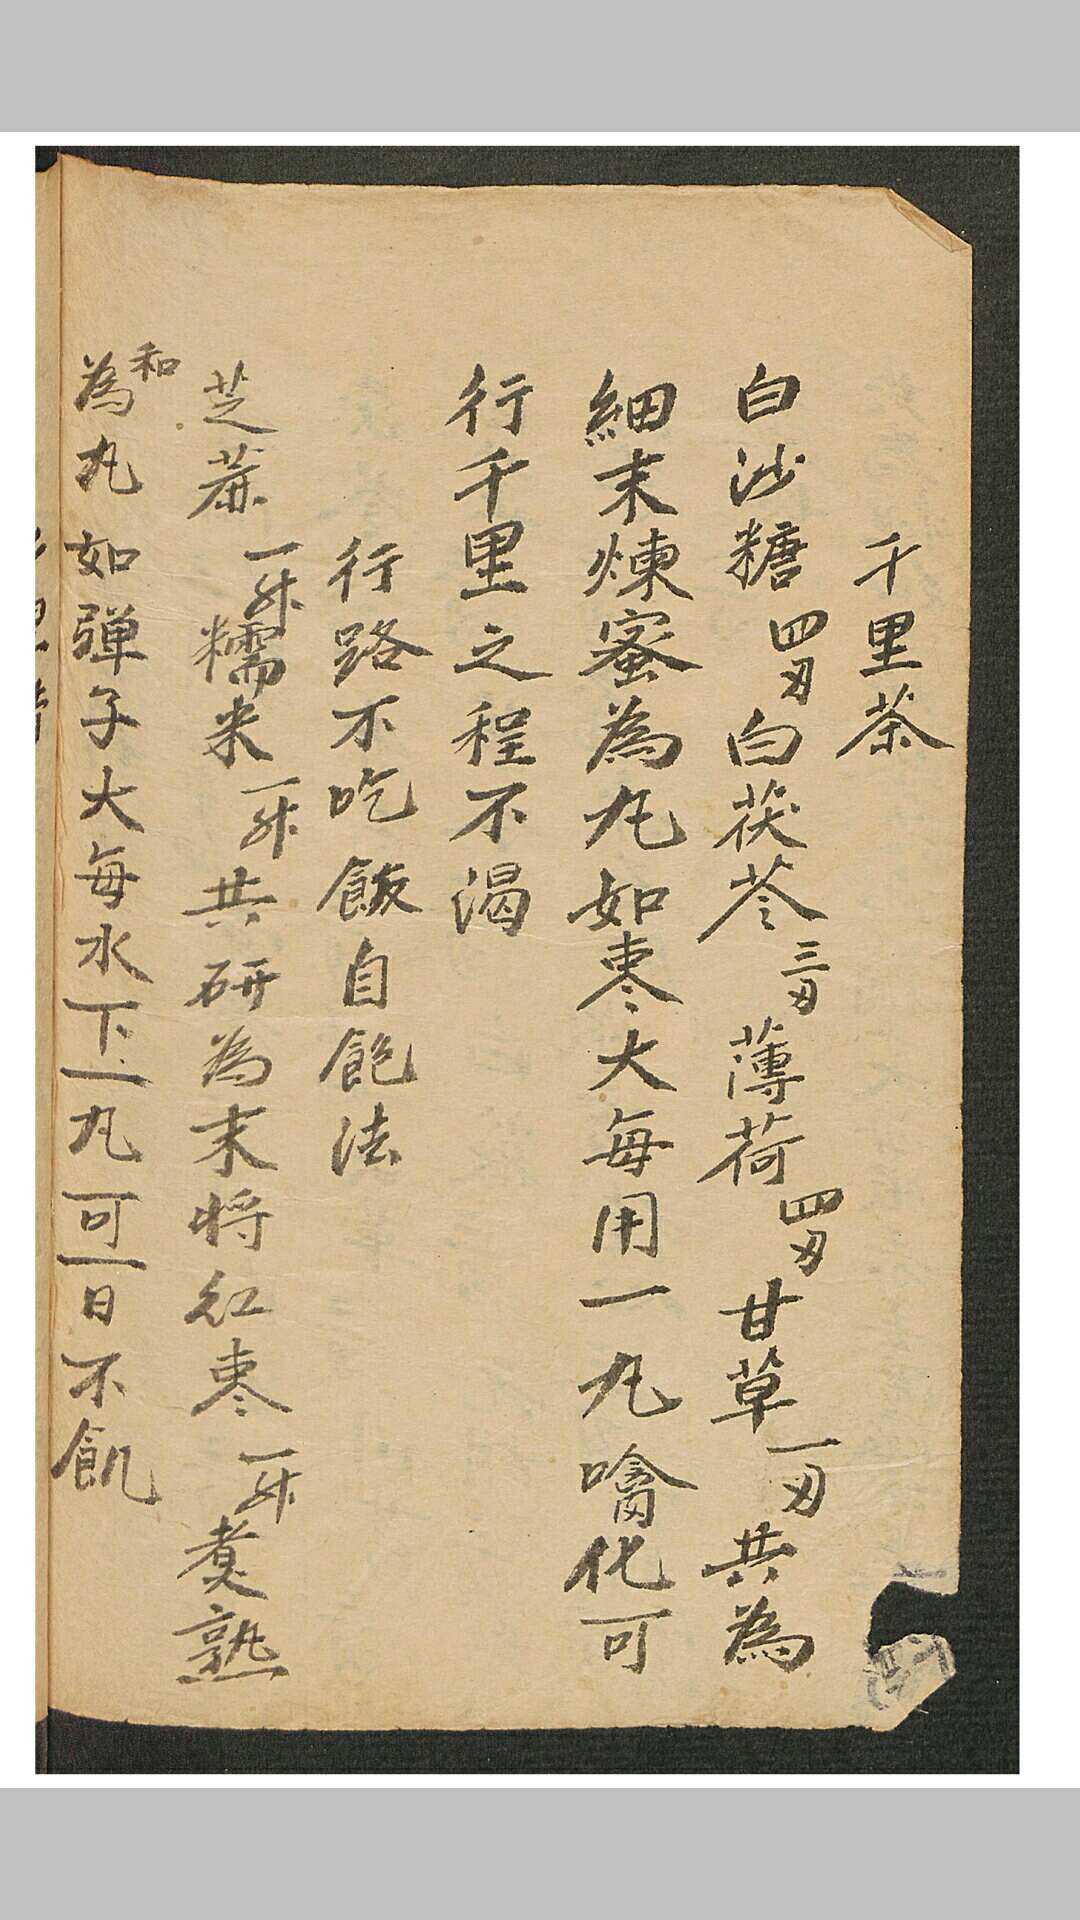 千里茶
白沙糖四刄白茯苓三刄薄荷四刄甘草一刄共為
細末煉蜜為丸如枣大每用一丸噙化可
行千里之程不渴
行路不吃飯自飽法
芝蔴一升糯米一升共研為末将红枣一升煑熟
和為丸如弾子大每水下一丸可一日不飢